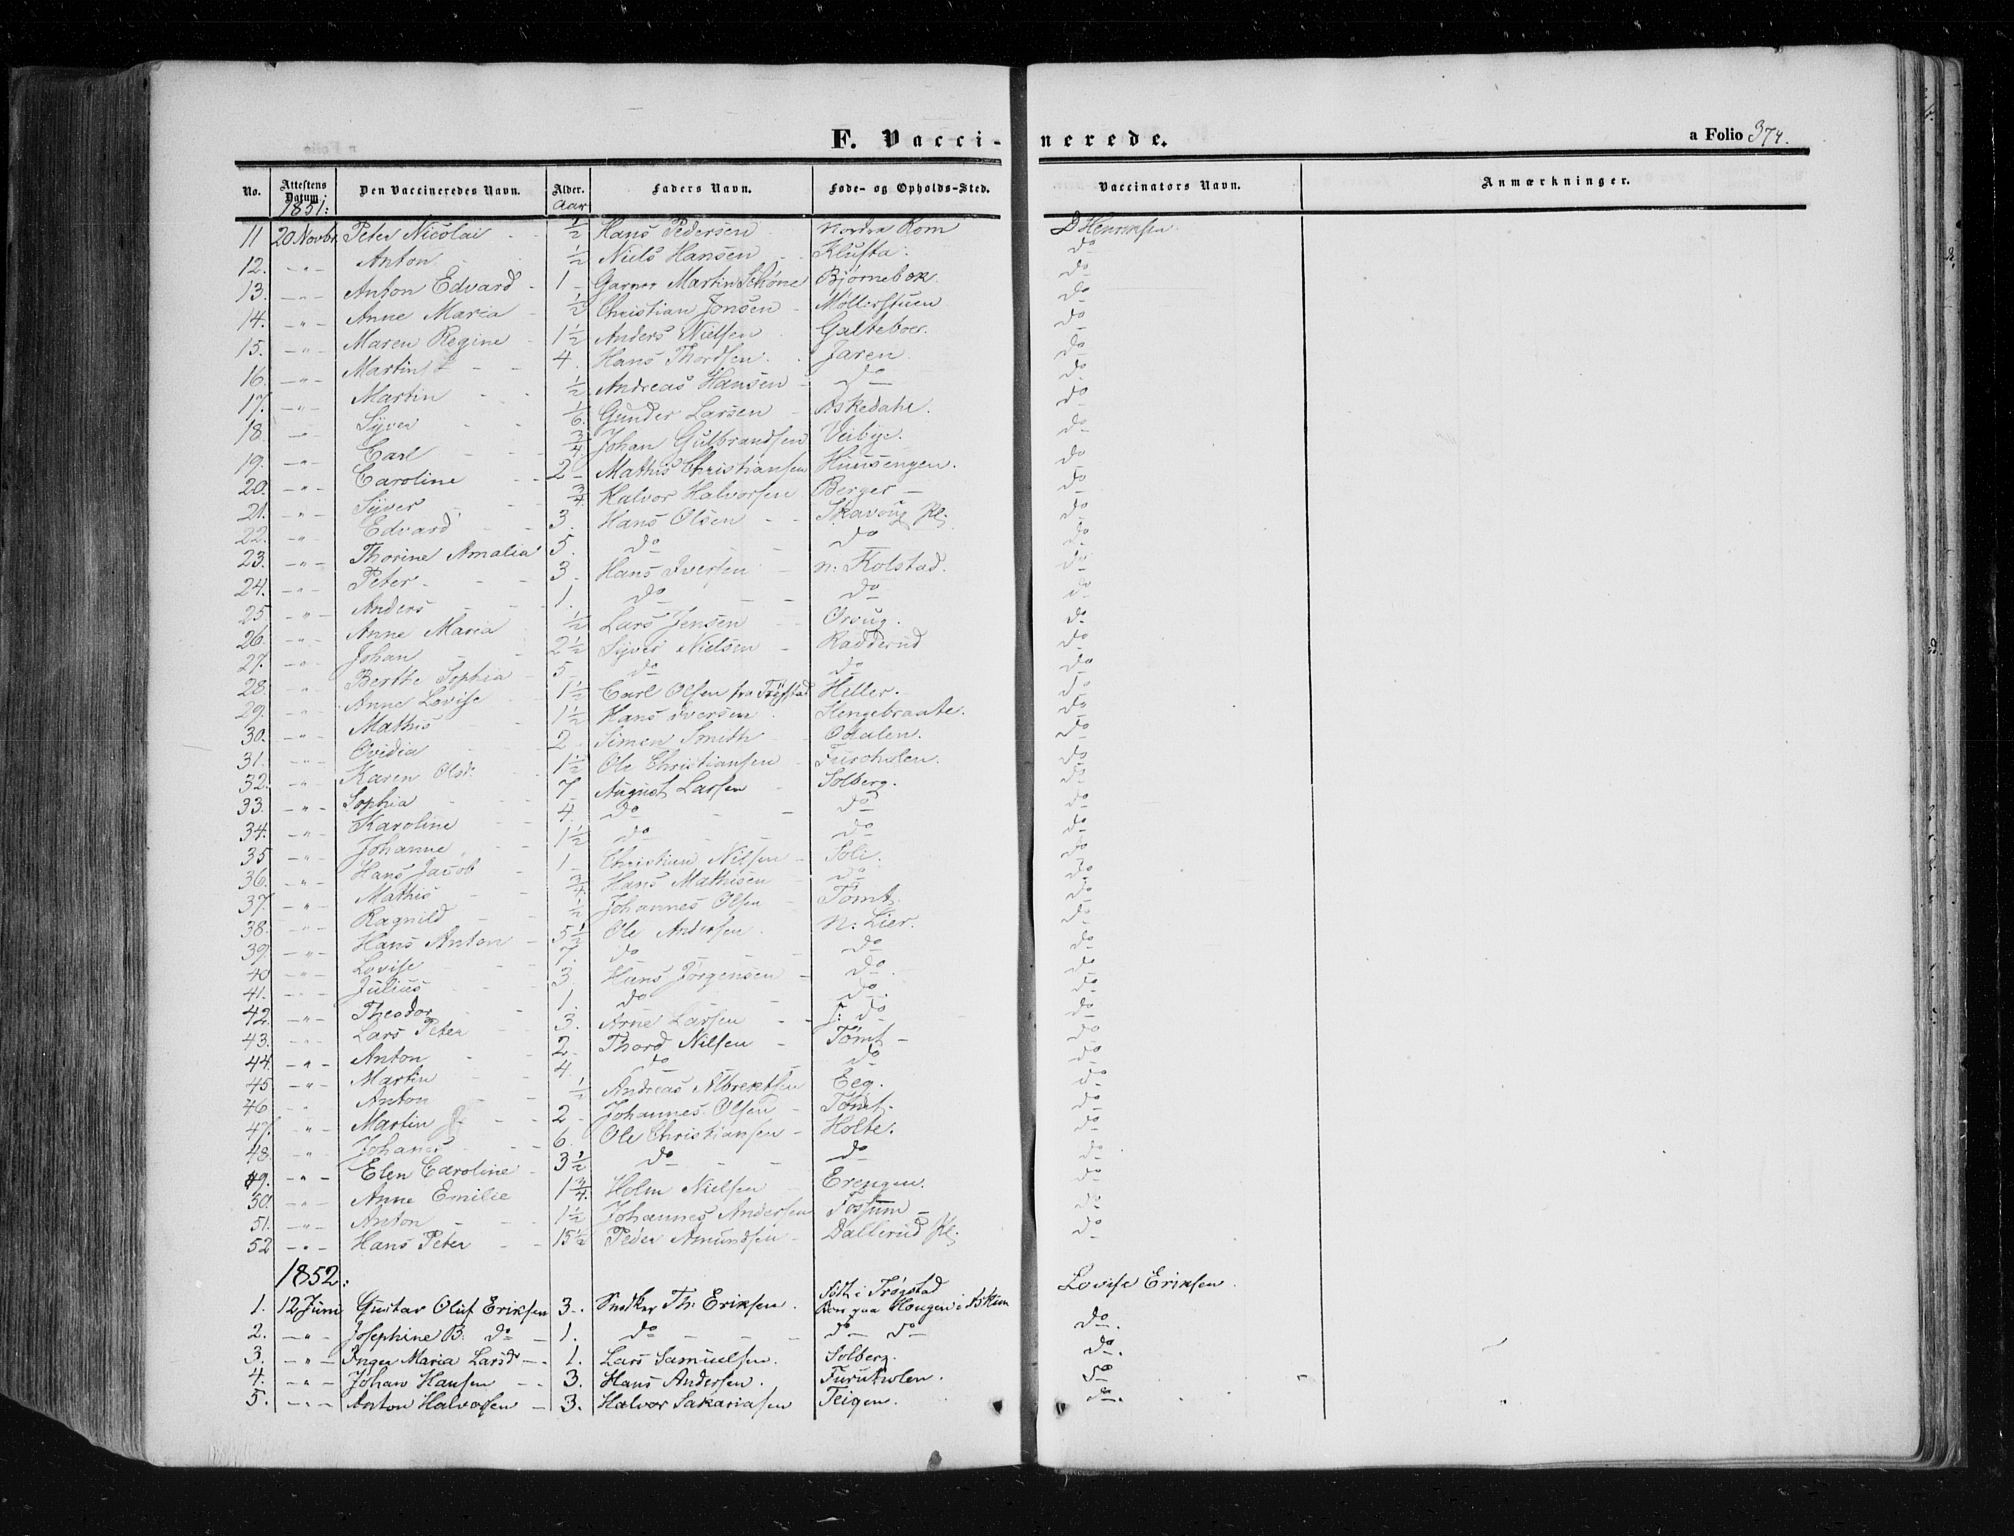 F. Vacci-nerede. a Folio 374.
No. Attestens Datum Den Vaccineredes Navn. Alder. Faders Navn. Føde- og Opholds-Sted. Vaccinators Navn. Anmærkninger.
1851: Aar
11 20 Novbr. Peter Nicolai - - 1/2 Hans Pedersen Nordra Rom D Henriksen
12. -"- Anton - - 1/2 Niels Hansen - Klufta. do
13. -"- Anton Edvard - 1 - Garver Martin Schøne Bjørnebek do
14. -"- Anne Maria - 1/2 Christian Jonsen - Møllerstuen do
15. -"- Maren Regine - 1 1/2 Anders Nielsen Galteboer. do
16. -"- Martin - - 4. Hans Thordsen. Jaren. do
17. -"- Martin - - 1/2 Andreas Hansen - do do
18. -"- Syver - - 1/6. Gunder Larsen - Askedahl. do
19. -"- Carl - - 3/4 Johan Gulbrandsen Veibye. do
20. -"- Caroline - - 2 - Mathis Christiansen Huusengen. do
21. -"- Syver - - 3/4 Halvor Halvorsen Berger - do
22. -"- Edvard - - 3. Hans Olsen - - Skavoug Pl: do
23. -"- Thorine Amalia 5. do - - do do
24. -"- Peter - - - 3. Hans Iversen - n: Kolstad. do
25 -"- Anders - - 1. do - - do do
26. -"- Anne Maria - 1/2 Lars Jensen - - Orsug. do
27. -"- Johan - - 2 1/2 Syver Nielsen - Radderud do
28. -"- Berthe Sophia - 5 - do do do
29. -"- Anne Lovise - 1 1/2 Carl Olsen fra Trygstad Heller. do
30. -"- Mathis - - 1 1/2 Hans Iversen. Hengebraate. do
31. -"- Ovidia - - 2 - Simen Smith - Odalen. do
32. -"- Karen Olsd. - 1 1/2 Ole Christiansen - Furoholen. do
33. -"- Sophia - - 7 August Larsen - Solberg. do
34. -"- Karoline - - 4. do - - do do
35 -"- Johanne - - 1 1/2 do - - do do
36. -"- Hans Jacob - 1 - Christian Nilsen - Soli. do
37. -"- Mathis - - 3/4. Hans Mathisen - do do
38. -"- Ragnild - - 1/2 Johannes Olsen - Tomt. do
39. -"- Hans Anton - 5 1/2 Ole Andersen. N: Lier. do
40 -"- Lovise - - 7. do - - do do
41. -"- Julius - - 3. Hans Jørgensen - do. do
42. -"- Theodor - - 1. do - - do. do
43. -"- Lars Peter - 3. Arne Larsen - - s: do do
44. -"- Anton - - 2 - Thord Nilsen - Tomt - do
45 -"- Martin - - 4. do do do
46 -"- Anton - - 1/2 Andreas Albrektsen Eeg. do
47. -"- Martin - 2 - Johannes Olsen - Tomt. do
48. -"- Johanes - - 6. Ole Christiansen - Holte. do
49. -"- Elen Caroline - 3 1/2 do - - do do
50. -"- Anne Emilie 1 3/4. Holm Nielsen - Erengen. do
51. -"- Anton - - 1 1/2 Johannes Andersen Fossum - do
52 -"- Hans Peter - - 15 1/2 Peder Amundsen - Dallerud Pl: do
1852:
1. 12 Juni Gustav Oluf Eriksen 3 -. Snedker Th: Eriksen. Føth i Trøgstad Lovise Eriksen.
Boer paa Hougen i Askim
2. -"- Josephine B: do - 1. do - - - do do do.
3. -"- Inger Maria Larsd - - 1. Lars Samuelsen. Solberg. do.
4. -"- Johan Hansen - - 3. Hans Andersen. Furuholen. do
5. -"- Anton Halvorsen - 3. Halvor Sakariasen Teigen. do.